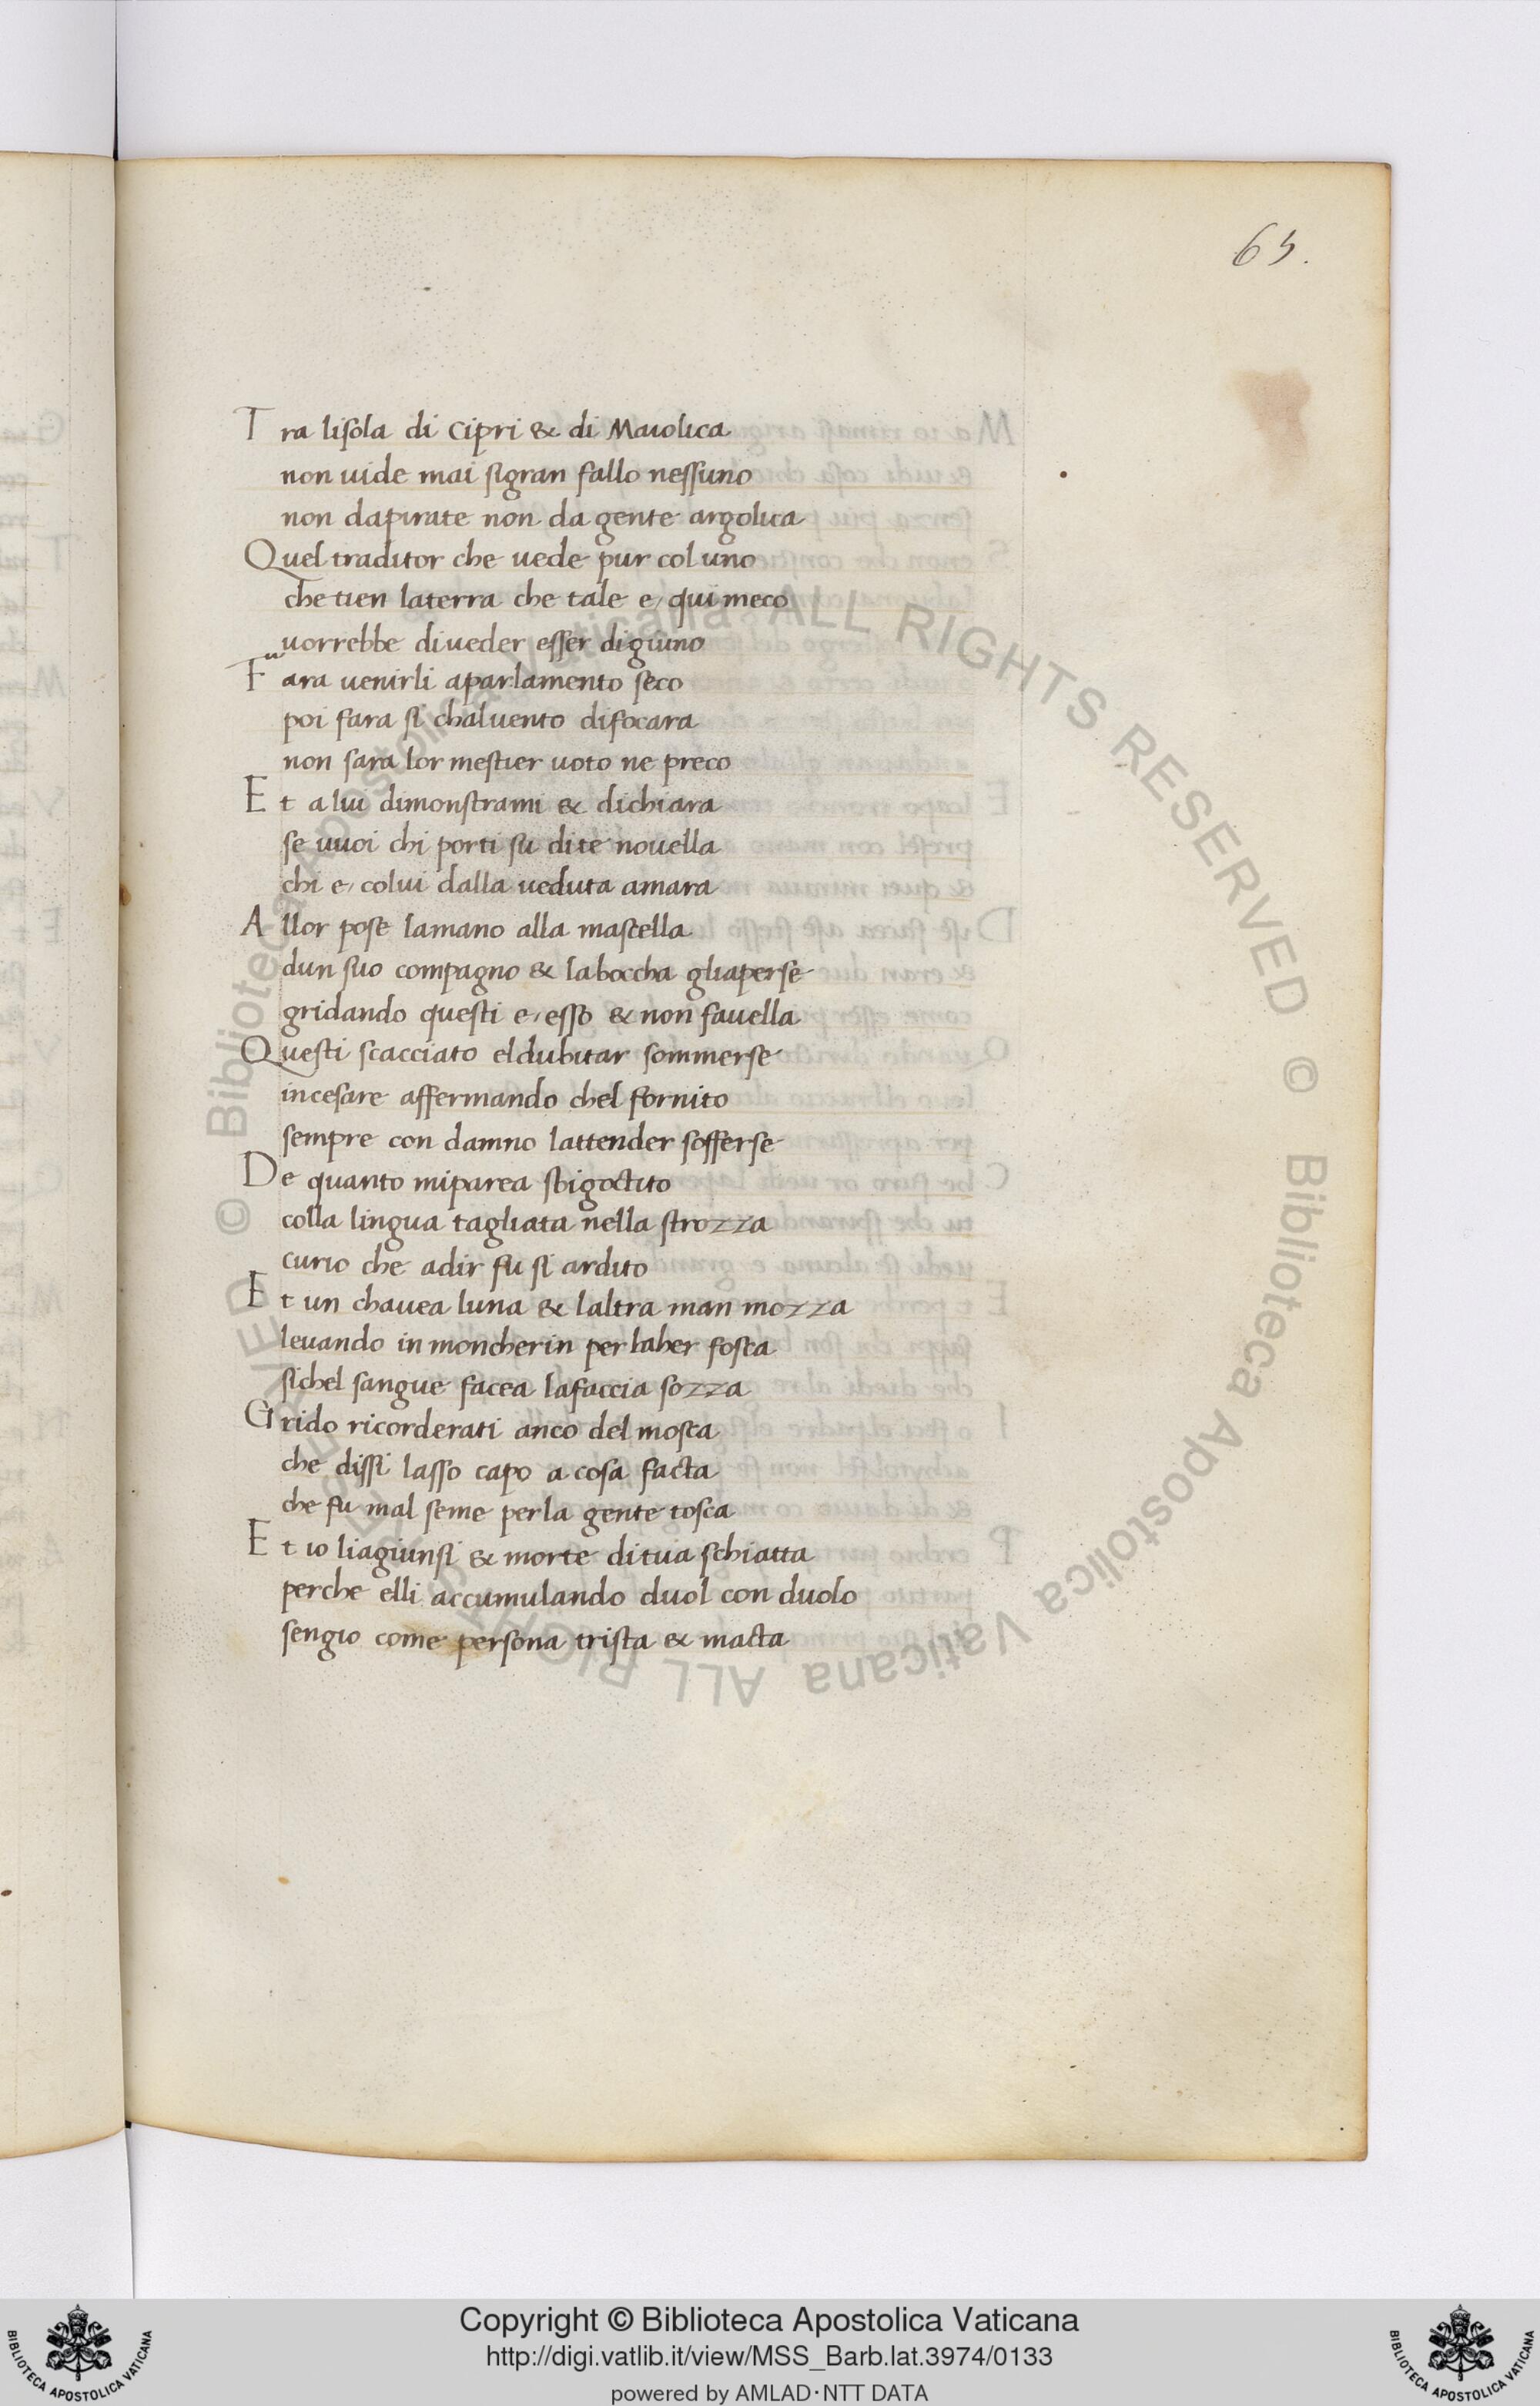 65.
Tra lisola di Cipri & di Maiolica
non uide mai sigran fallo nessuno
non dapirate non da gente argolica
Quel traditor che uede pur col uno
che tien laterra che tale e, qui meco
uorrebbe diueder esser digiuno
Fara uenirli aparlamento seco
poi fara si chaluento difocara
non sara lor mestier uoto ne preco
Et a lui dimonstrami & dichiara
se uuoi chi porti su dite nouella
chi e, colui dalla ueduta amara
Allor pose lamano alla mascella
dun suo compagno & laboccha gliaperse
gridando questi e, esso & non fauella
Questi scacciato eldubitar sommerse
incesare affermando chel fornito
sempre con damno lattender sofferse
De quanto miparea sbigoctito
colla lingua tagliata nella strozza
curio che adir fu si ardito
Et un chauea luna & laltra man mozza
leuando in moncherin per laher fosca
sichel sangue facea lafaccia sozza
Grido ricorderati anco del mosca
che dissi lasso capo a cosa facta
che fu mal seme perla gente tosca
Et io liagiunsi & morte ditua schiatta
perche elli accumulando duol con duolo
sengio come persona trista & macta
© Biblioteca Apostolica Vaticana ALL RIGHTS RESERVED © Biblioteca Apostolica Vaticana ALL RIGHTS RESERVED
Copyright © Biblioteca Apostolica Vaticana
http://digi.vatlib.it/view/MSS_Barb.lat.3974/0133
powered by AMLAD·NTT DATA
BIBLIOTECA APOSTOLICA VATICANA
BIBLIOTECA APOSTOLICA VATICANA